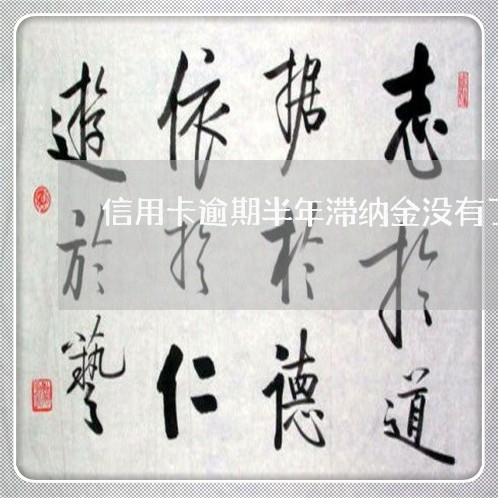 志於道
据於德
依於仁
遊於藝
信用卡逾期半年滞纳金没有